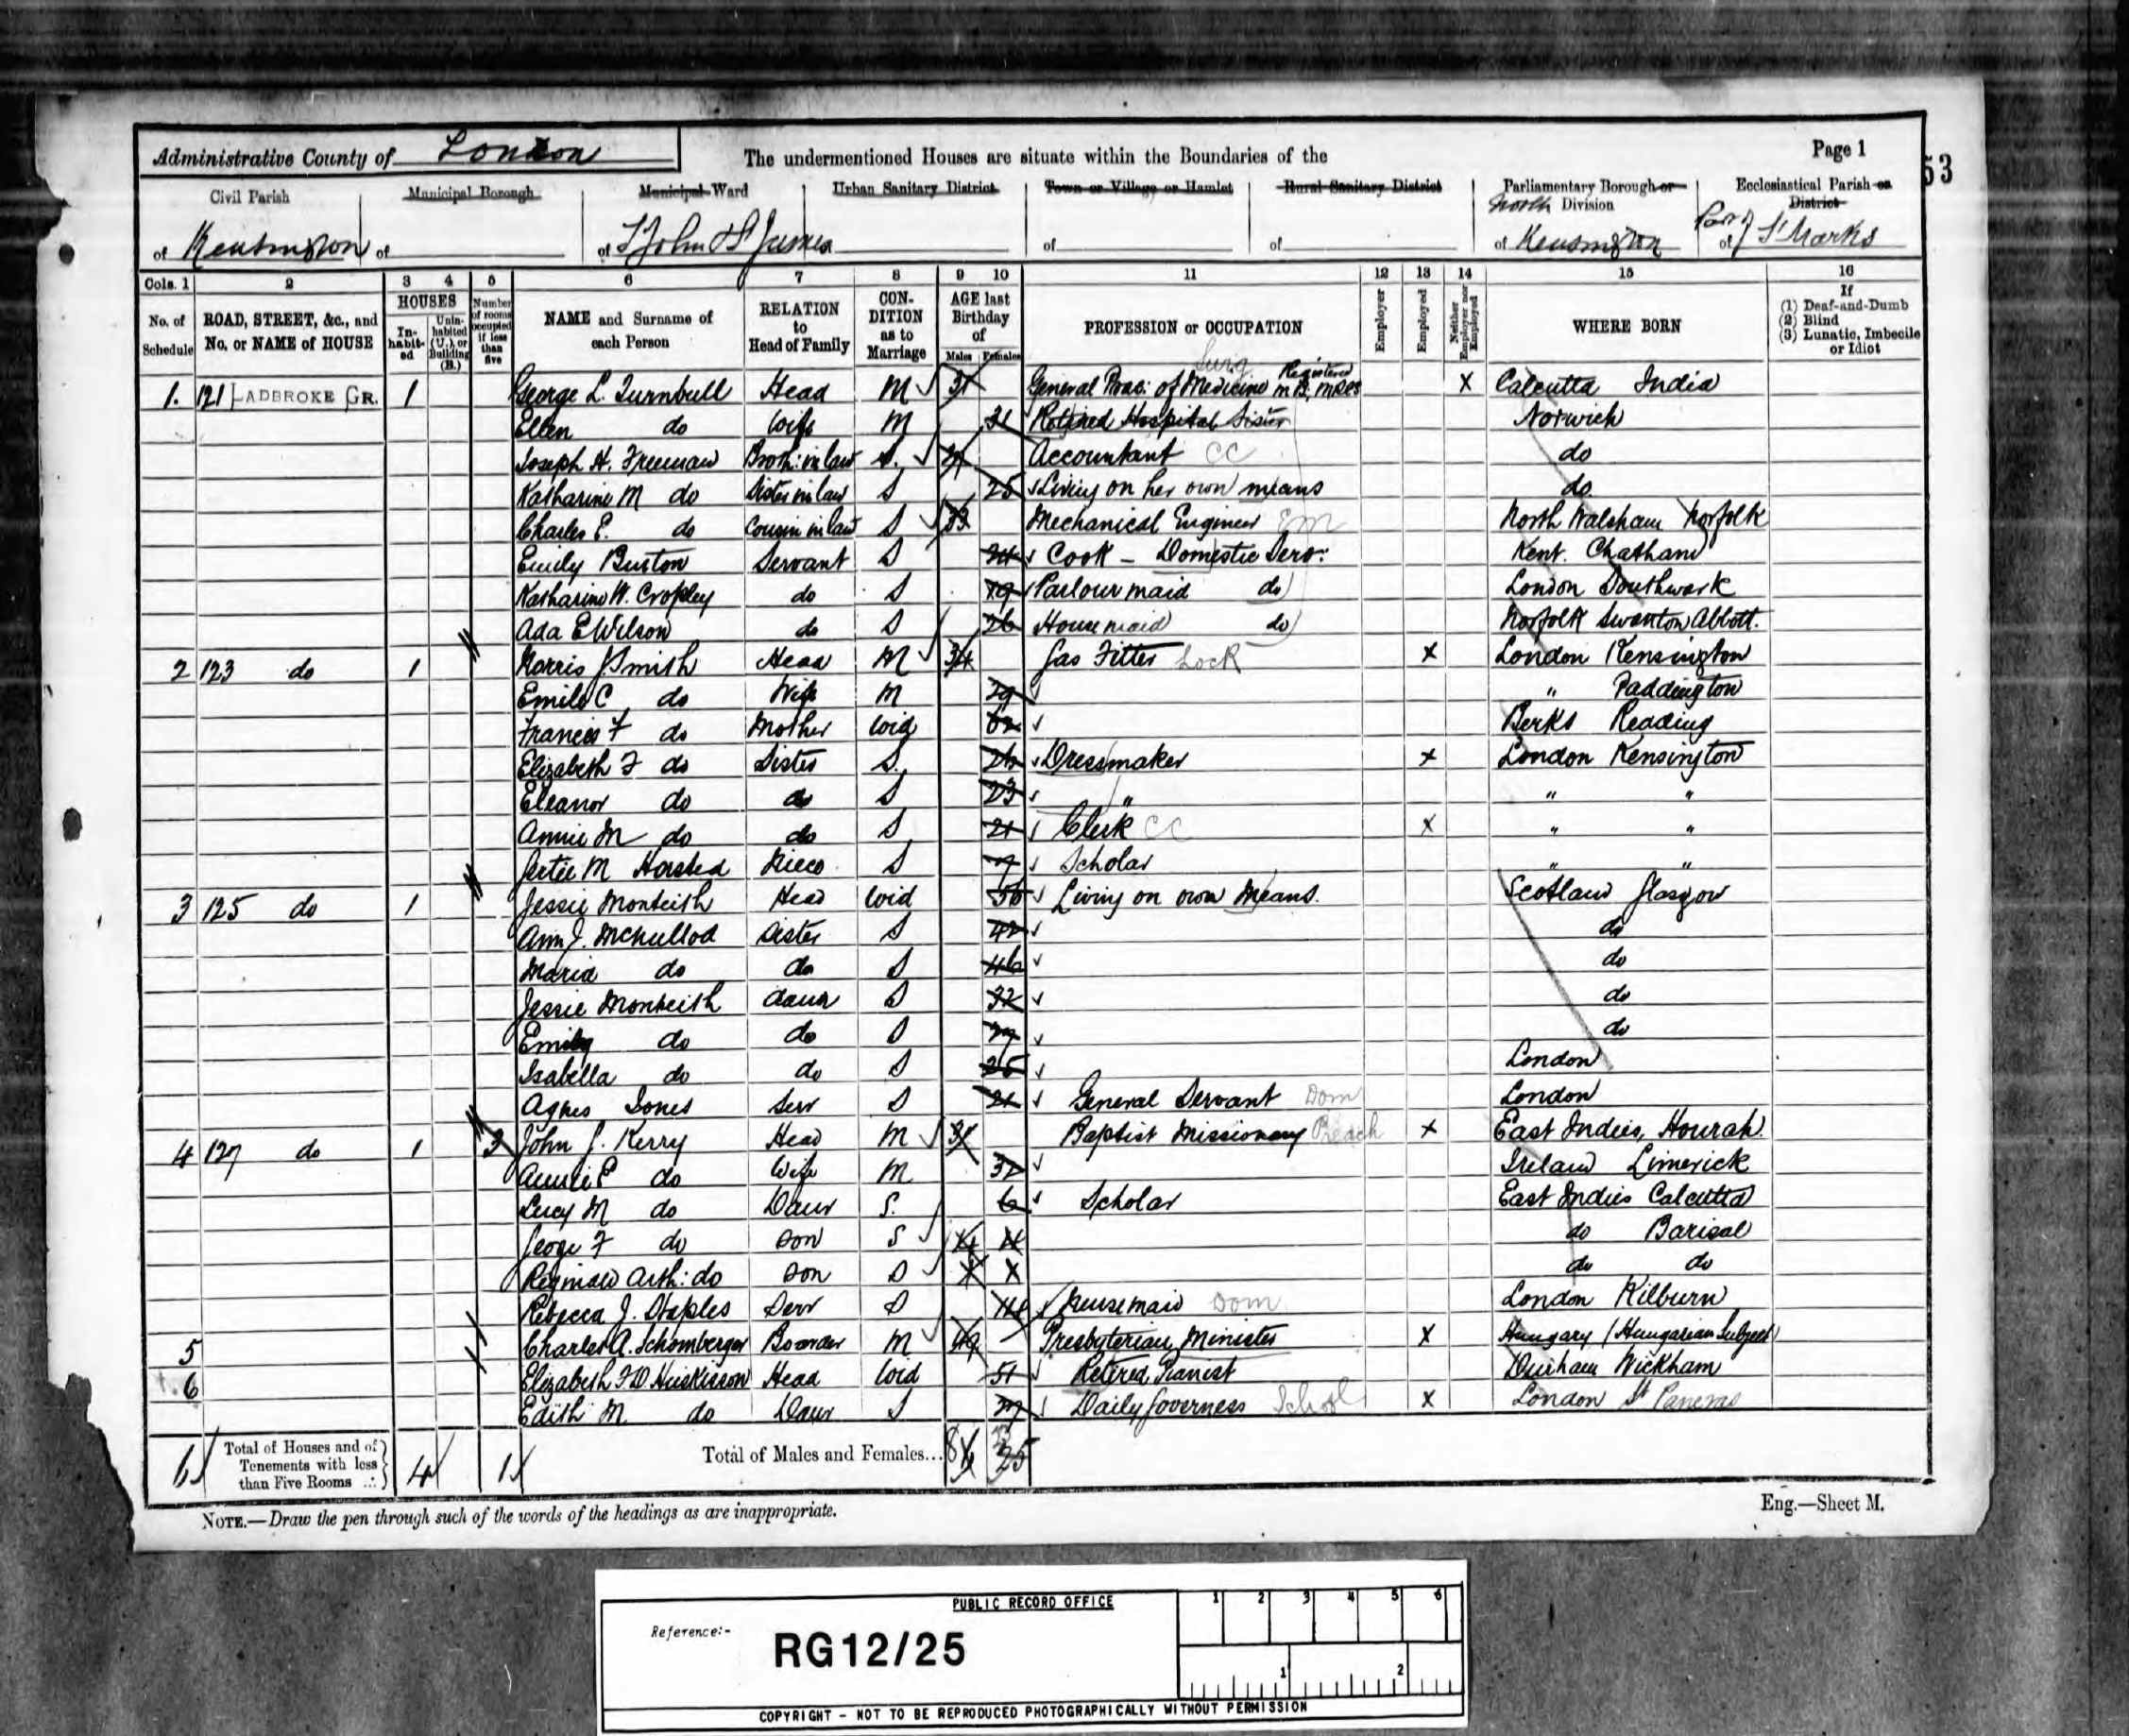 Administrative County of London
The undermentioned Houses are situate within the Boundaries of the
Page 1
53
Civil Parish
of Kensington
Municipal Borough
of
Municipal Ward
of St John & St James
Urban Sanitary District
Town or Village or Hamlet
of
Rural Sanitary District
of
Parliamentary Borough or
North Division
of Kensington
Ecclesiastical Parish or
District
Part of St Marks
Cols. 1 2 3 4 5 6 7 8 9 10 11 12 13 14 15 16
No. of Schedule
ROAD, STREET, &c., and No. or NAME of HOUSE
HOUSES
Inhabited
Uninhabited (U.), or Building (B.)
Number of rooms occupied if less than five
NAME and Surname of each Person
RELATION to Head of Family
CONDITION as to Marriage
AGE last Birthday of
Males Females
PROFESSION or OCCUPATION
Employer
Employed
Neither Employer nor Employed
WHERE BORN
If
(1) Deaf-and-Dumb
(2) Blind
(3) Lunatic, Imbecile or Idiot
1. 121 LADBROKE GR. 1 George L. Turnbull Head M General Prac: of Medicine Surg Registered M.B. MRCS X Calcutta India
Ellen do Wife M 31 Retired Hospital Sister Norwich
Joseph H. Freeman Broth: in law S. Accountant CC do
Katharine M do Sister in law S 25 Living on her own means do
Charles E. do Cousin in law S 33 Mechanical Engineer EM North Walsham Norfolk
Emily Burton Servant S 24 Cook - Domestic Serv: Kent. Chatham
Katharine W. Cropley do S 19 Parlour maid do London Southwark
Ada E Wilson do S 26 Housemaid do Norfolk Swanton Abbott.
2 123 do 1 Smith Head M 34 Gas Fitter Lock X London Kensington
Emile C do Wife M 29 " Paddington
Frances F do Mother Wid 62 Berks Reading
Elizabeth F do Sister S. 26 Dressmaker X London Kensington
Eleanor do do S 23 " " "
Annie M do do S 21 Clerk CC X " "
M Horsted Niece S Scholar " "
3 125 do 1 Jessie Monteith Head Wid 56 Living on own Means. Scotland Glasgow
Ann J. Sister S 42 do
Maria do do S 46 do
Jessie Monteith daur S 32 do
Emily do do S do
Isabella do do S 25 London
Agnes Jones Serv S 21 General Servant Dom London
4 127 do 1 3 John J. Kerry Head M 31 Baptist Missionary Preach X East Indies, Hourah.
Annie E do Wife M 32 Ireland Limerick
Lucy M do Daur S. 6 Scholar East Indies Calcutta
F do Son S 4 do Barisal
Reginald Arth: do Son S do do
Rebecca J. Staples Serv S 14 Housemaid Dom London Kilburn
5 Charles A. Schomberger Boarder M 49 Presbyterian Minister X Hungary (Hungarian Subject)
6 Elizabeth F D Huskisson Head Wid 51 Retired Pianist Durham Wickham
Edith M do Daur S Daily Governess School X London St Pancras
6 Total of Houses and of Tenements with less than Five Rooms 4 1 Total of Males and Females... 25
NOTE.—Draw the pen through such of the words of the headings as are inappropriate.
Eng.—Sheet M.
PUBLIC RECORD OFFICE
1 2 3 4 5 6
Reference:-
RG12/25
1 2
COPYRIGHT - NOT TO BE REPRODUCED PHOTOGRAPHICALLY WITHOUT PERMISSION